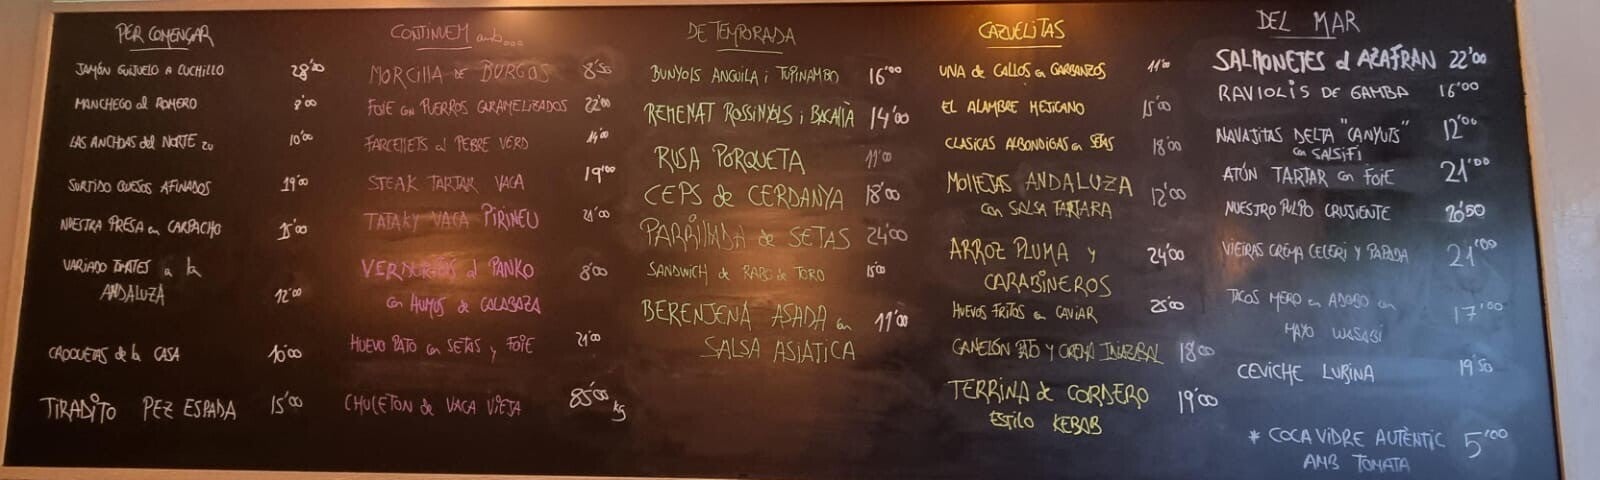 PER COMENÇAR
JAMÓN GUIJUELO A CUCHILLO 28'00
MANCHEGO al ROMERO 9'00
LAS ANCHOAS del NORTE 10'00
SURTIDO QUESOS AFINADOS 19'00
NUESTRA PRESA en CARPACHO 15'00
VARIADO TMATES a la
ANDALUZA 12'00
CROQUETAS de la CASA 10'00
TIRADITO PEZ ESPADA 15'00
CONTINUEM amb...
MORCILLA de BURGOS 8'50
FOIE con PUERROS CARAMELIZADOS 22'00
FARCELLETS al PEBRE VERD 14'00
STEAK TARTAR VACA 19'00
TATAKY VACA PIRINEU 21'00
VERDURITAS al PANKO 8'00
con HUMUS de CALABAZA
HUEVO PATO con SETAS y FOIE 21'00
CHULETON de VACA VIEJA 85'00 kg
DE TEMPORADA
BUNYOLS ANGUILA i TUPINAMBO 16'00
REMENAT ROSSINYOLS i BACALLÀ 14'00
RUSA PORQUETA 11'00
CEPS de CERDANYA 18'00
PARRILLADA de SETAS 24'00
SANDWICH de RABO de TORO 15'00
BERENJENA ASADA en 11'00
SALSA ASIÁTICA
CAZUELITAS
UNA de CALLOS con GARBANZOS 11'00
EL ALAMBRE MEJICANO 15'00
CLASICAS ALBONDIGAS con SETAS 18'00
MOLLEJAS ANDALUZA 12'00
con SALSA TARTARA
ARROZ PLUMA y 24'00
CARABINEROS
HUEVOS FRITOS con CAVIAR 25'00
CANELÓN PATO Y CREMA IDIAZABAL 18'00
TERRINA de CORDERO 19'00
ESTILO KEBAB
DEL MAR
SALMONETES al AZAFRAN 22'00
RAVIOLIS DE GAMBA 16'00
NAVAJITAS DELTA "CANYUTS" 12'00
con SALSIFI
ATÚN TARTAR con FOIE 21'00
NUESTRO PULPO CRUJIENTE 20'50
VIEIRAS CREMA CELERI Y PAPADA 21'00
TACOS MERO en ADOBO con 17'00
MAYO WASABI
CEVICHE LUBINA 19'50
* COCA VIDRE AUTÈNTIC 5'00
AMB TOMATA